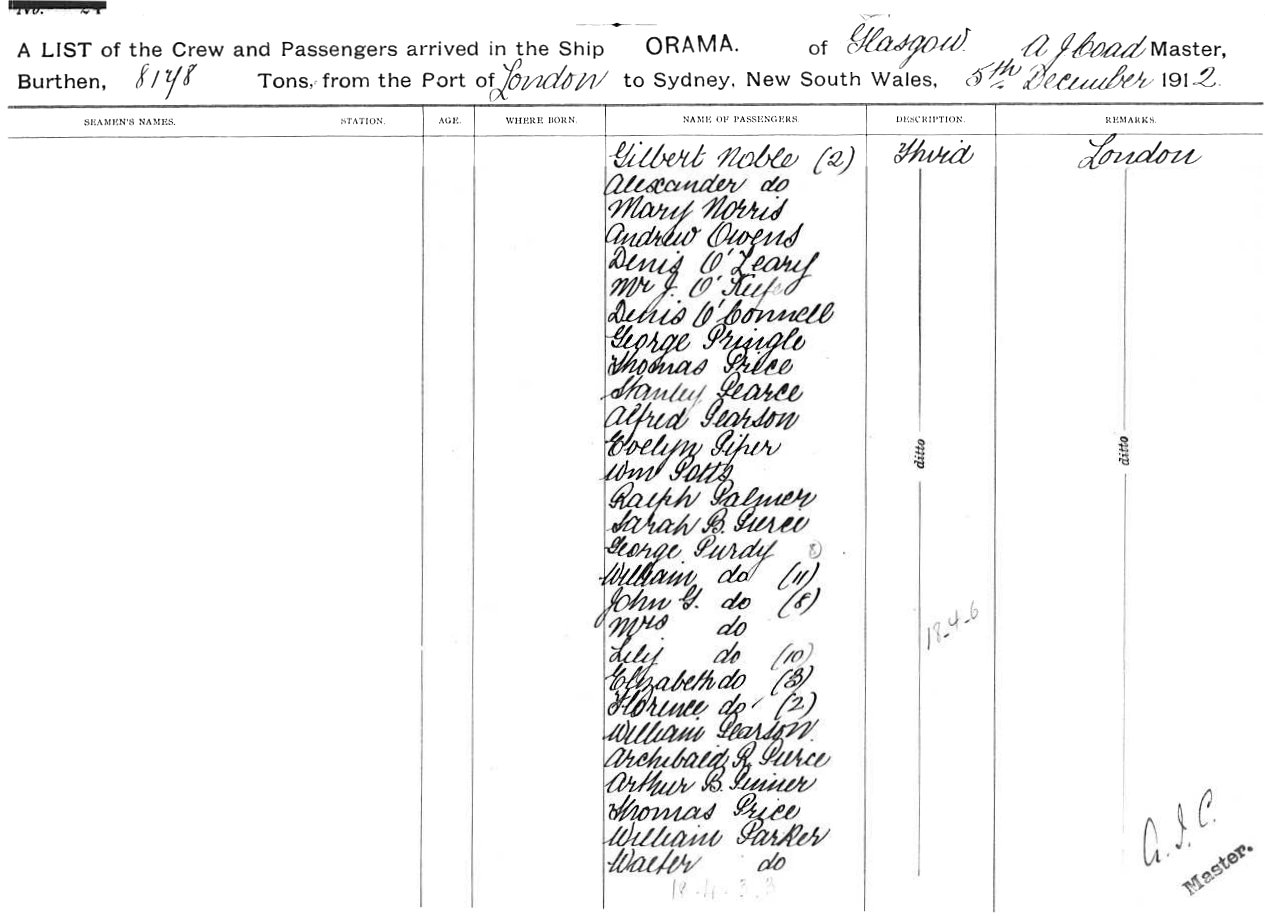 No. 24
A LIST of the Crew and Passengers arrived in the Ship ORAMA. of Glasgow. A J Coad Master,
Burthen, 8178 Tons, from the Port of London to Sydney, New South Wales, 5th December 1912.
SEAMEN'S NAMES. STATION. AGE. WHERE BORN. NAME OF PASSENGERS. DESCRIPTION. REMARKS.
Gilbert Noble (2) Third London
Alexander do
Mary Norris
Andrew Owens
Denis O'Leary
Mr J. O'Keefe
Denis O'Connell
George Pringle
Thomas Price
Stanley Pearce
Alfred Pearson
Evelyn Piper ditto ditto
Wm Potts
Ralph Palmer
Sarah B. Pierce
George Purdy
William do (11)
John G. do (8)
Mrs do 18-4-6
Lily do (10)
Elizabeth do (3)
Florence do (2)
William Pearson.
Archibald R. Pierce
Arthur B.
Thomas Price
William Parker
Walter do
18-4-3.3
Master.